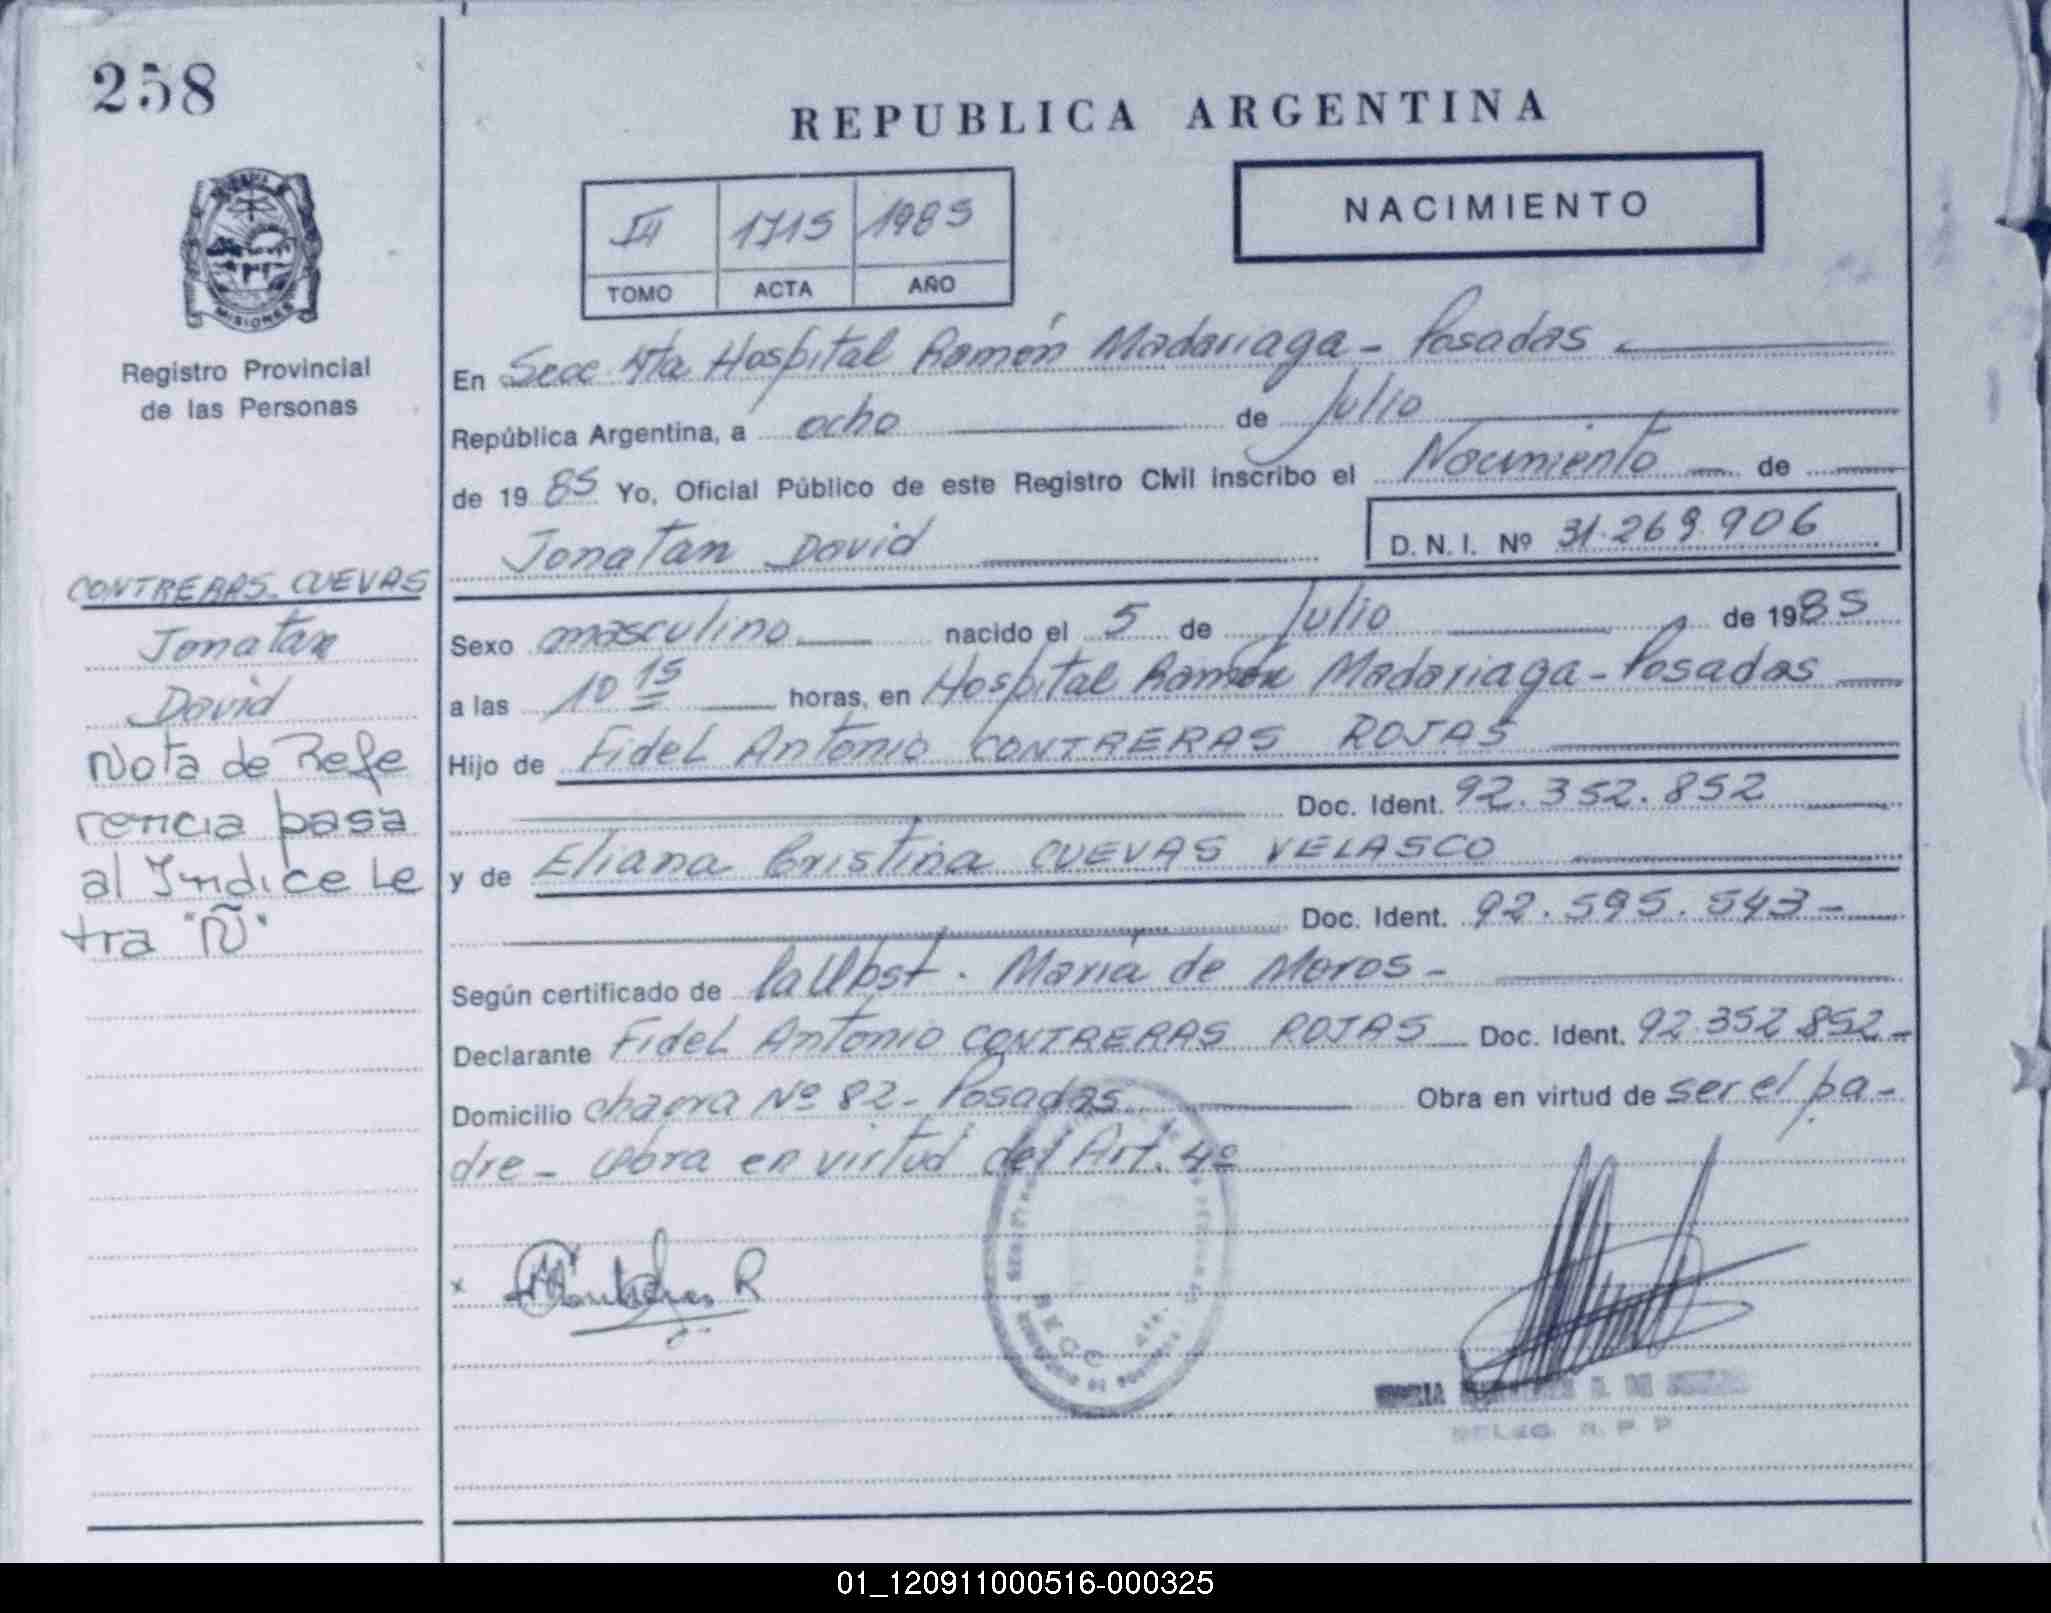 258
REPUBLICA ARGENTINA
NACIMIENTO
III 1715 1985
TOMO ACTA AÑO
MISIONES
Registro Provincial
de las Personas
En Secc 4ta Hospital Ramón Madariaga - Posadas
República Argentina, a ocho de Julio
de 1985 Yo, Oficial Público de este Registro Civil inscribo el Nacimiento de
Jonatan David D. N. I. Nº 31.269.906
CONTRERAS CUEVAS
Jonatan
David
Nota de Refe
rencia pasa
al Indice Le
tra "Ñ"
Sexo masculino nacido el 5 de Julio de 1985
a las 10 15 horas, en Hospital Ramón Madariaga - Posadas
Hijo de Fidel Antonio CONTRERAS ROJAS
Doc. Ident. 92.352.852
y de Eliana Cristina CUEVAS VELASCO
Doc. Ident. 92.595.543-
Según certificado de la Obst. Maria de Moros-
Declarante Fidel Antonio CONTRERAS ROJAS Doc. Ident. 92.352.852-
Domicilio chacra Nº 82- Posadas Obra en virtud de ser el pa-
dre - Obra en virtud del Art. 4º
x Contreras R
DELEG. R. P. P
01_120911000516-000325